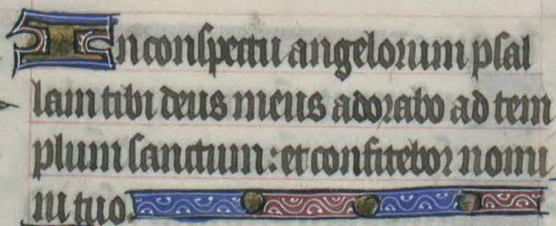 In conspectu angelorum psal
lam tibi deus meus adorabo ad tem
plum sanctum: et confitebor nomi
ni tuo.